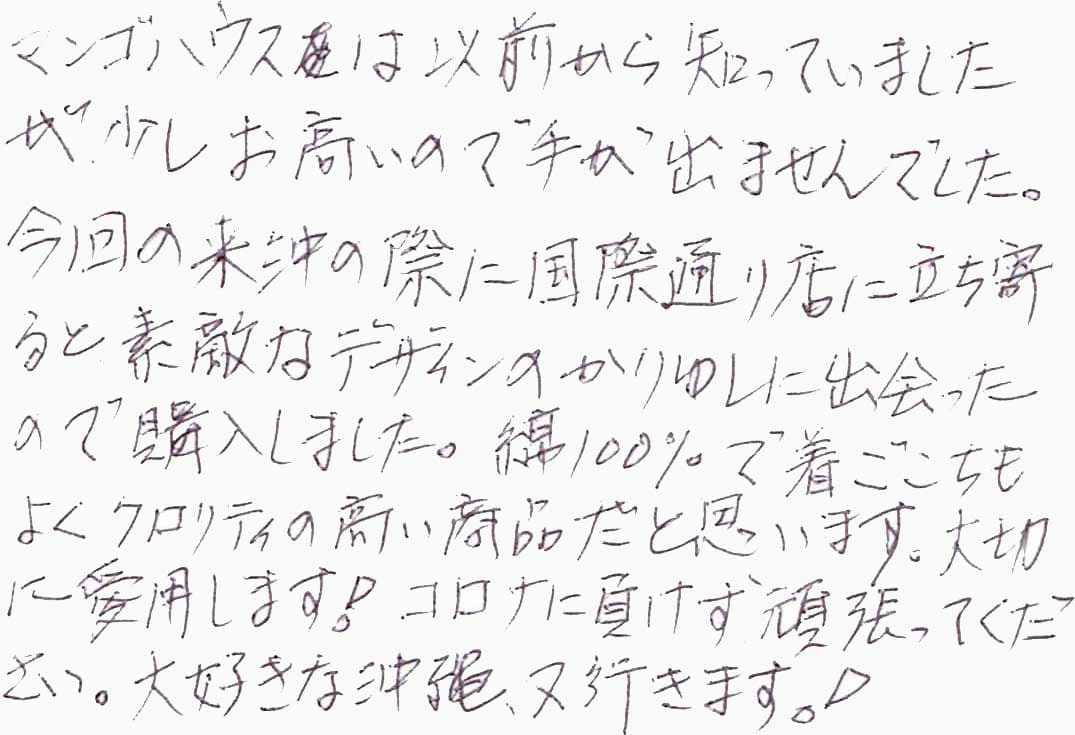 マンゴハウスは以前から知っていました
が少しお高いので手が出ませんでした。
今回の来沖の際に国際通り店に立ち寄
ると素敵なデザインのかりゆしに出会った
ので購入しました。綿100%で着ごこちも
よくクロリティの高い商品だと思います。大切
に愛用します！コロナに負けず頑張ってくだ
さい。大好きな沖縄、又行きます。！